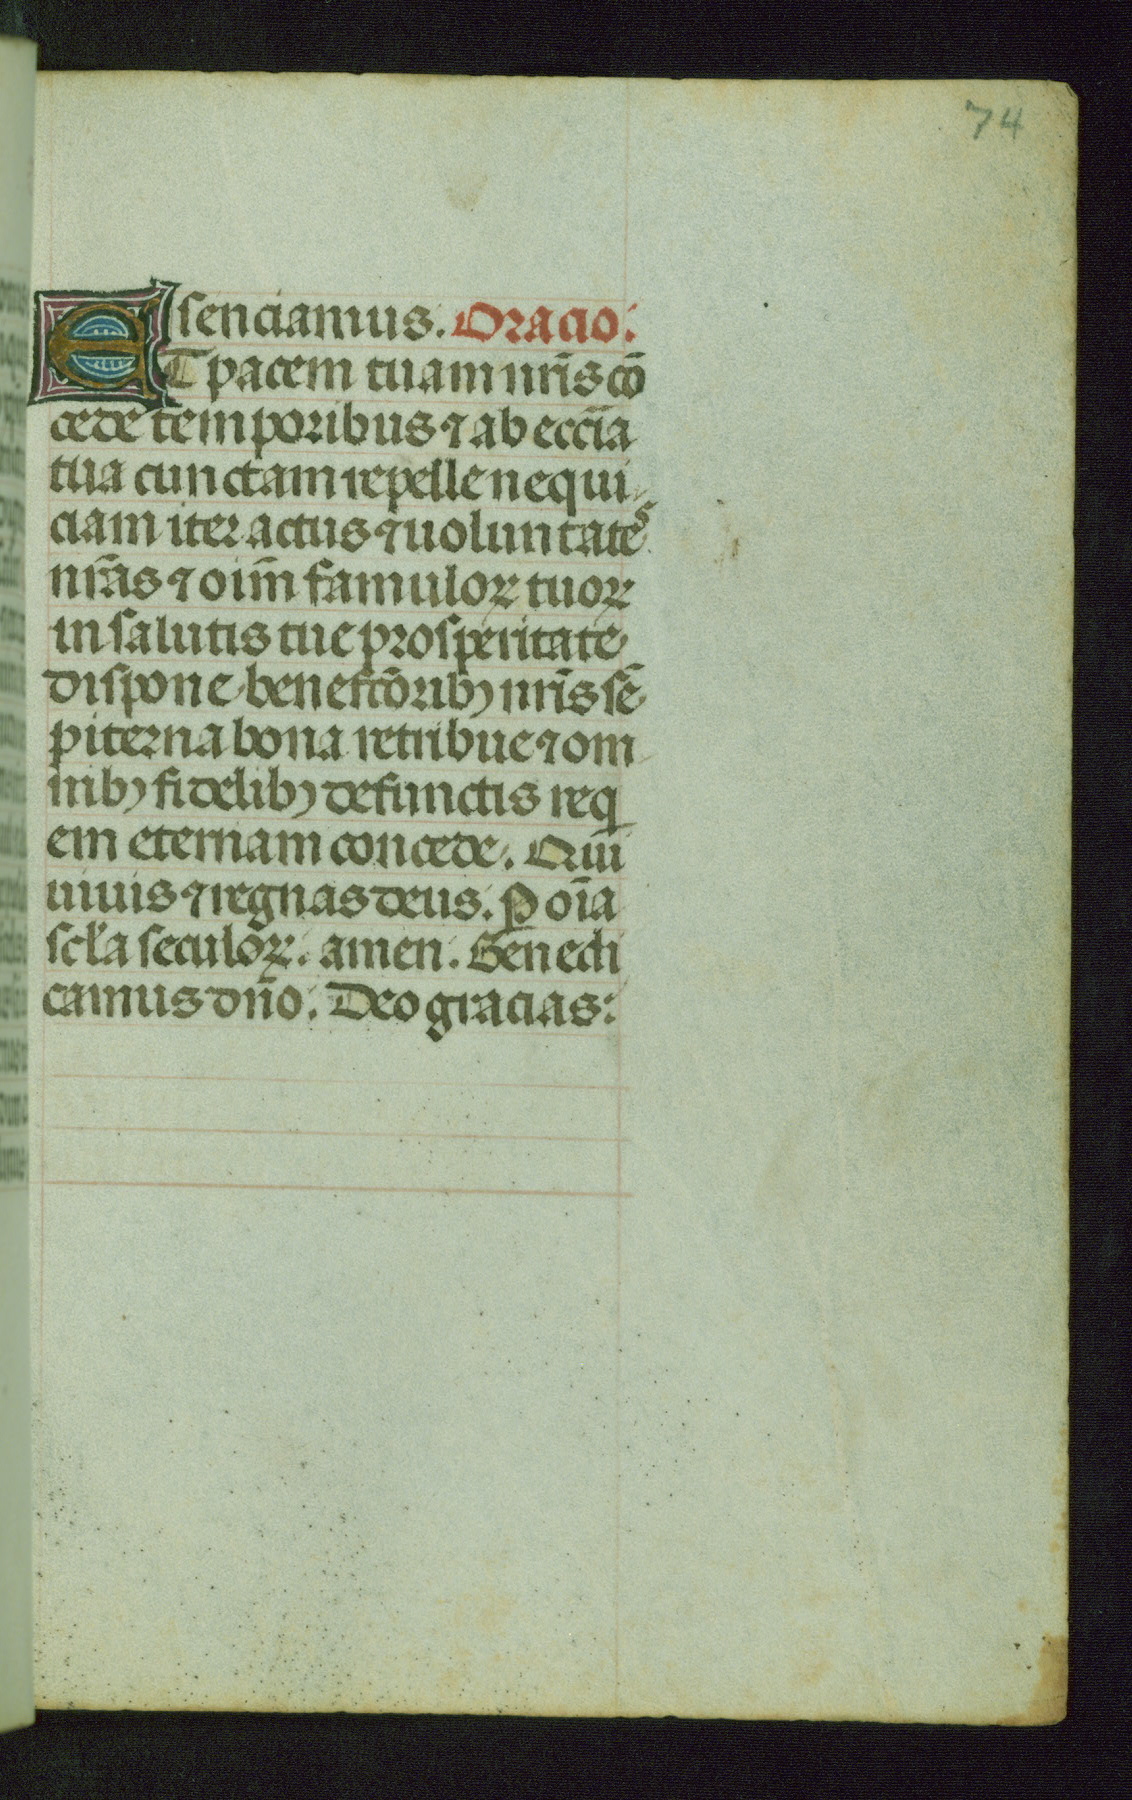 74
senciamus. Oracio:
ET pacem tuam nr̄is cō
cede temporibus ⁊ ab eccīa
tua cunctam repelle nequi
ciam iter actus ⁊ uoluntates
nr̄as ⁊ oīm famuloꝝ tuoꝝ
in salutis tue prosperitate
dispone benefcōribꝫ nr̄is sē
piterna bona retribue ⁊ om
nibꝫ fidelibꝫ defunctis req
em eternam concede. Qui
uiuis ⁊ regnas deus. ꝑ oīa
scl̄a seculoꝝ. amen. Benedi
camus dn̄o. Deo gracias: